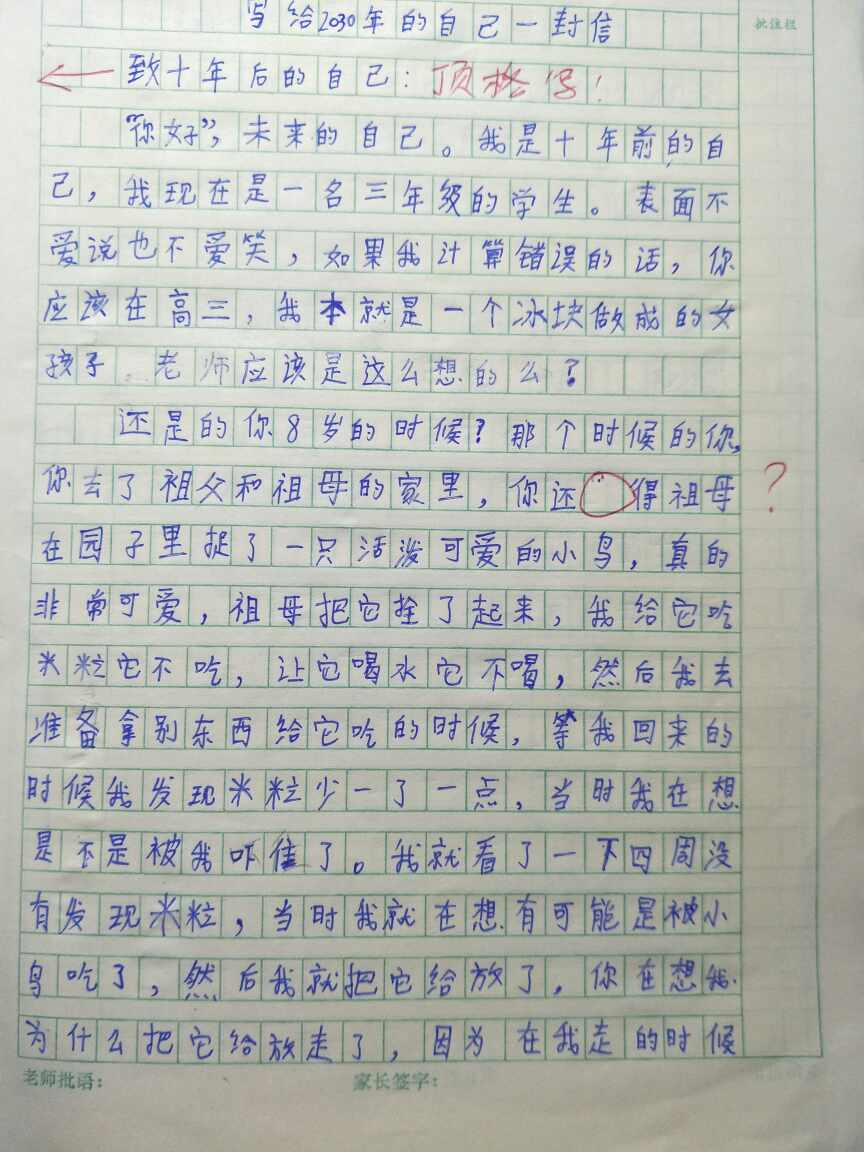 写给2030年的自己一封信
批注栏
致十年后的自己：顶格写！
“你好”，未来的自己。我是十年前的自
己，我现在是一名三年级的学生。表面不
爱说也不爱笑，如果我计算错误的话，你
应该在高三，我本就是一个冰块做成的女
孩子．老师应该是这么想的么？
还是的你8岁的时候？那个时候的你，
你去了祖父和祖母的家里，你还得祖母？
在园子里捉了一只活泼可爱的小鸟，真的
非常可爱，祖母把它拴了起来，我给它吃
米粒它不吃，让它喝水它不喝，然后我去
准备拿别东西给它吃的时候，等我回来的
时候我发现米粒少一了一点，当时我在想
是不是被我吓住了。我就看了一下四周没
有发现米粒，当时我就在想．有可能是被小
鸟吃了，然后我就把它给放了．你在想我．
为什么把它给放走了，因为在我走的时候
老师批语： 家长签字：